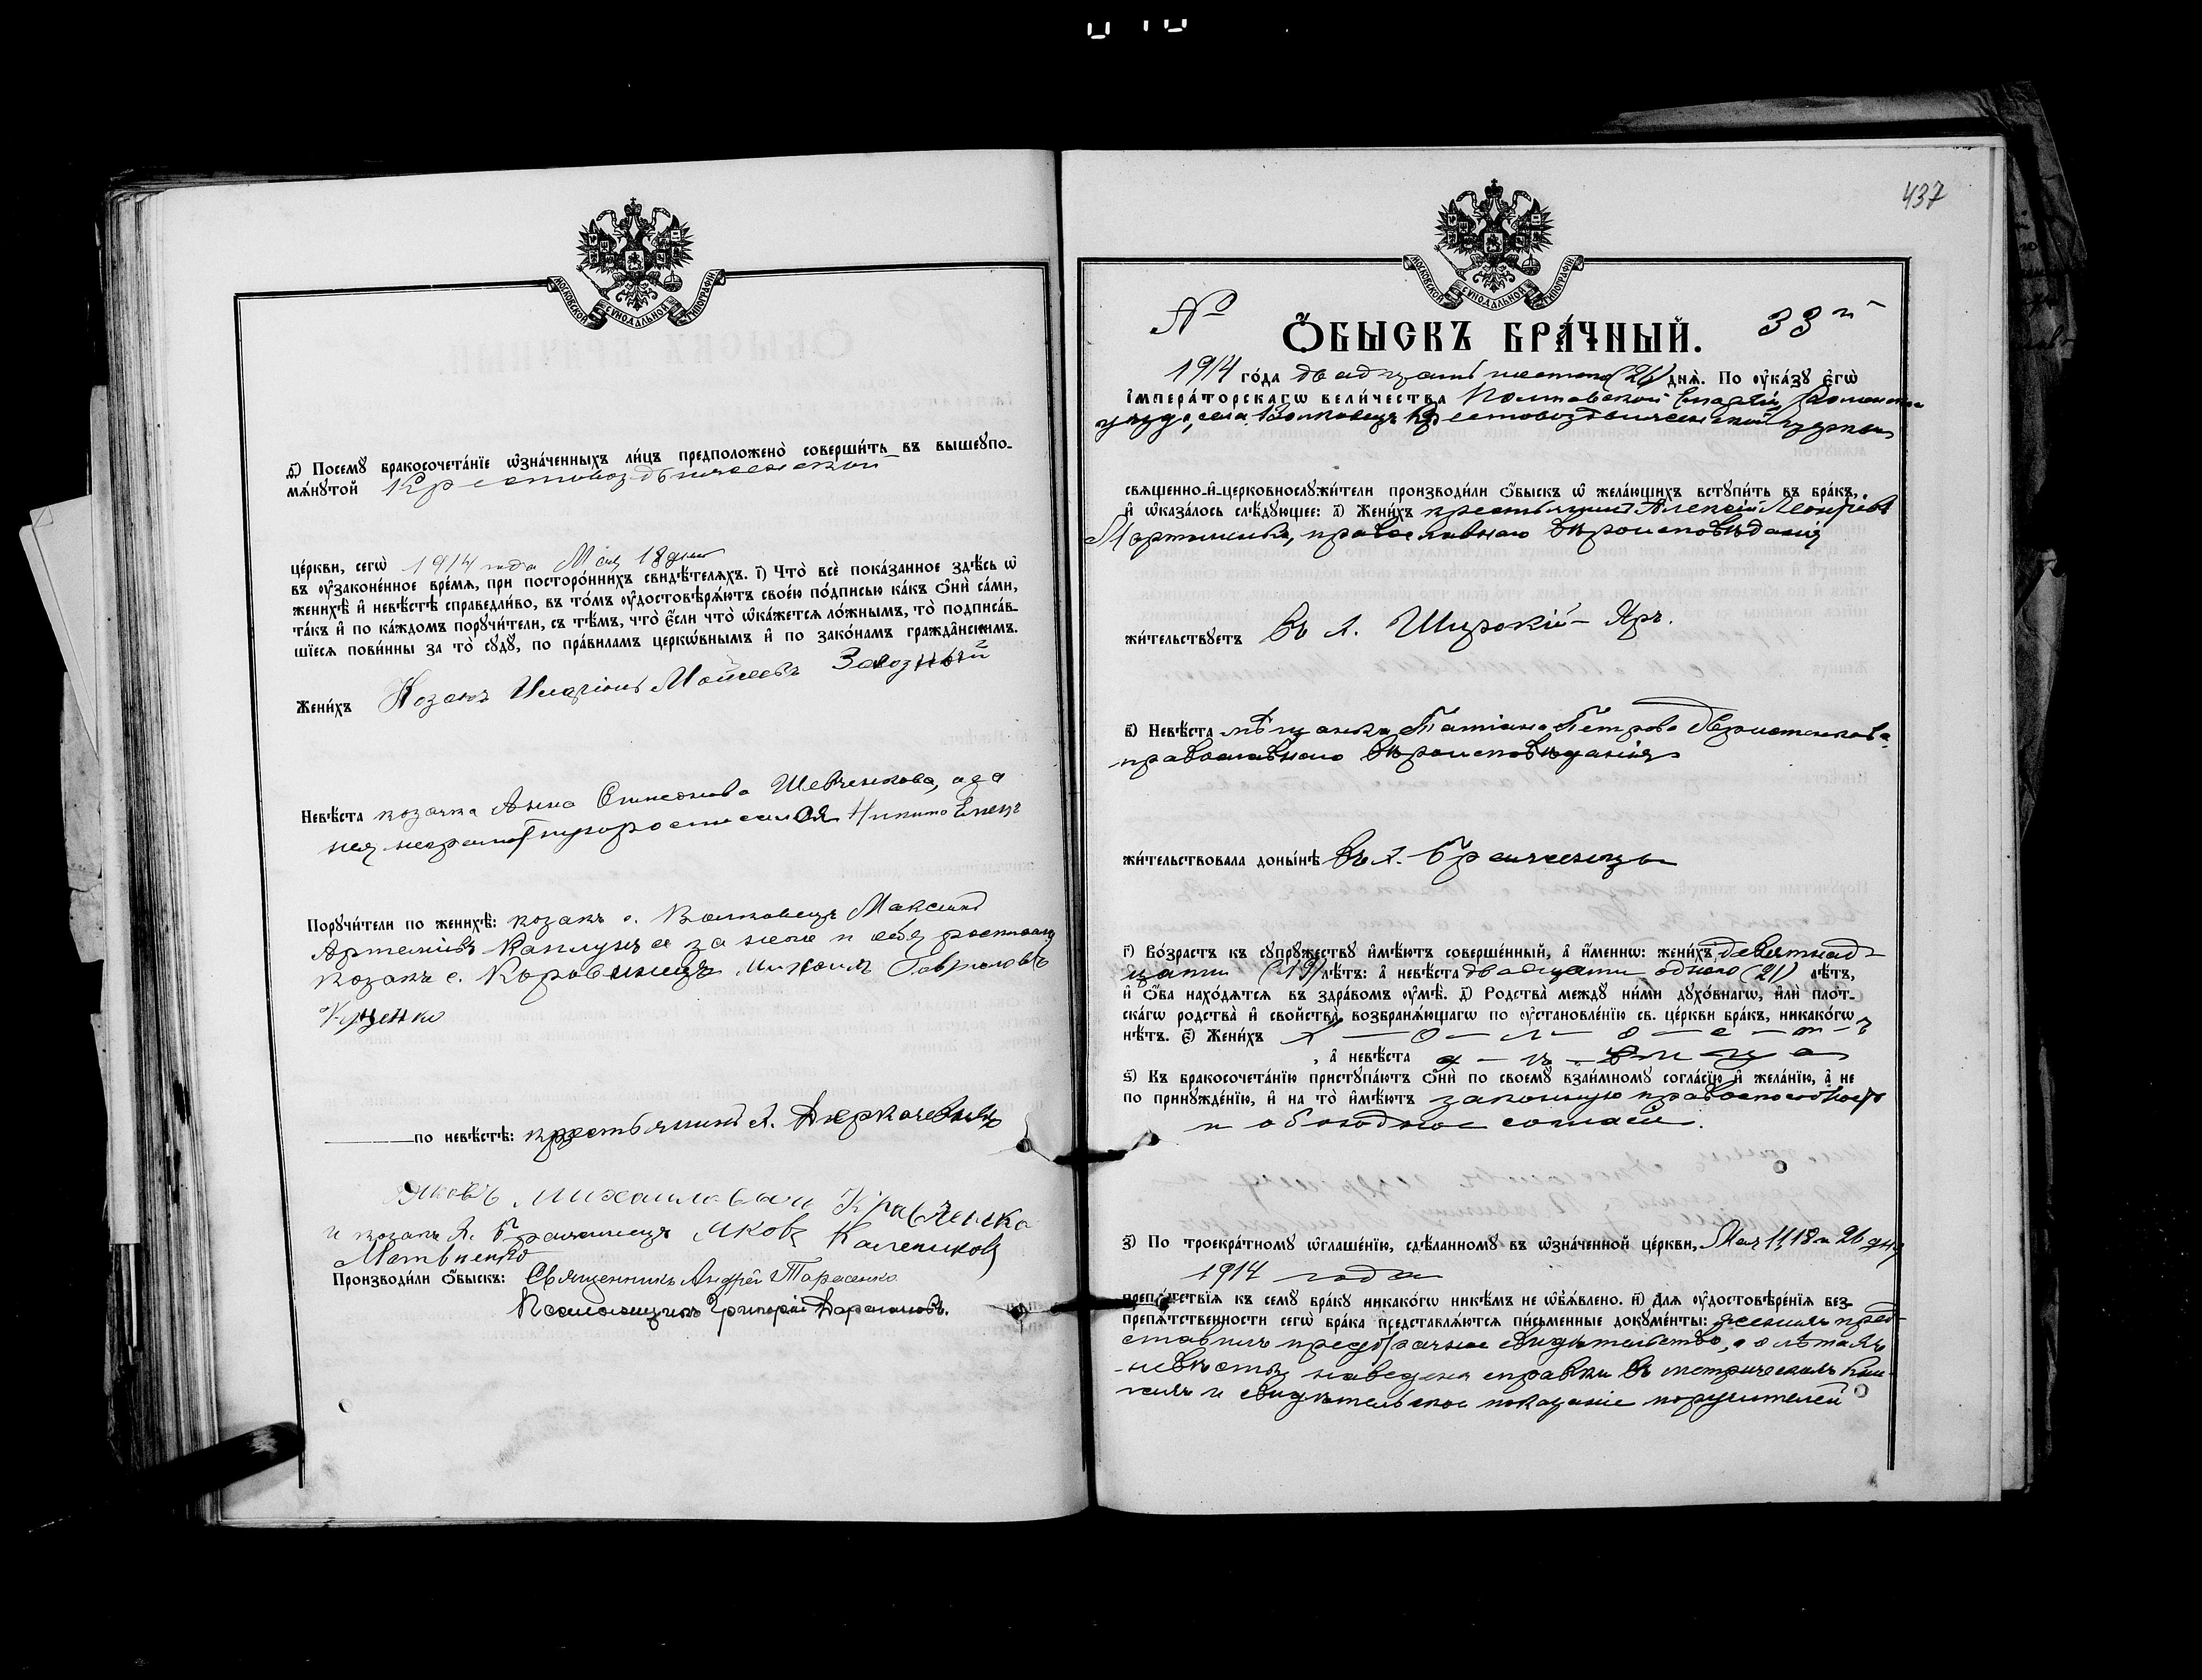 МОСКОВСКОЙ СѴНОДАЛЬНОЙ ТИПОГРАФІИ
д҃і) Посемꙋ бракосочета́нїе ѡ҆зна́ченныхъ ли́цъ предположено̀ соверши́ть въ вышеꙋпо-
мѧ́нꙋтой Крестовоздвиженской
це́ркви, сегѡ̀ 1914 года Мая 18 дня
въ ᲂу҆зако́ненное вре́мѧ, при посторо́ннихъ свидѣ́телѧхъ. і҃) Что̀ всѐ пока́занное здѣ́сь ѡ҆
женихѣ̀ и҆ невѣ́стѣ справедли́во, въ то́мъ ᲂу҆достовѣрѧ́ютъ свое́ю по́дписью ка́къ ѻ҆нѝ са́ми,
та́къ и҆ по ка́ждомъ порꙋчи́тели, съ тѣ́мъ, что̀ є҆́сли что̀ ѡ҆ка́жетсѧ ло́жнымъ, то̀ подписа́в-
шїесѧ пови́нны за то̀ сꙋдꙋ̀, по пра́виламъ церко́внымъ и҆ по зако́намъ гражда́нскимъ.
Жени́хъ Козакъ Иларіонъ Мойсеевъ Завозный
Невѣ́ста козачка Анна Симеонова Шевченкова, а за
нея неграмотную росписался Никита
Порꙋчи́тели по женихѣ̀: козакъ с. Волковецъ Максимъ
Артемiевъ Каплунъ а за него и себя росписался
козакъ с. Коровинецъ Михаилъ Гавриловъ
Куценко
по невѣ́стѣ: крестьянинъ д.
Яковъ Михайловичъ Кравченко
и козакъ д. Яковъ
Матвиенко
Производи́ли ѻ҆́быскъ: Священникъ Андрей Тарасенко
Псаломщикъ Григорій
437
МОСКОВСКОЙ СѴНОДАЛЬНОЙ ТИПОГРАФІИ
№ 33й
Ѻ҆́БЫСКЪ БРА́ЧНЫЙ.
1914 го́да двадцать шестого (26) днѧ̀. По ᲂу҆ка́зꙋ є҆гѡ̀
і҆мпера́торскагѡ вели́чества Полтавской Епархіи, Роменскаго
уѣзда, села Волковецъ Крестовоздвиженской церкви
свѧще́нно-и҆-церковнослꙋжи́тели производи́ли ѻ҆́быскъ ѡ҆ жела́ющихъ встꙋпи́ть въ бра́къ,
и҆ ѡ҆каза́лось слѣ́дꙋющее: а҃) Жени́хъ крестьянинъ Алексій Леонтіевъ
православнаго вѣроисповѣданія
жи́тельствꙋетъ въ д. Широкій-Яръ.
в҃) Невѣ́ста мѣщанка Татіана Петрова
православнаго вѣроисповѣданія
жи́тельствовала доны́нѣ въ д.
г҃) Во́зрастъ къ сꙋпрꙋ́жествꙋ и҆мѣ́ютъ соверше́нный, а҆ и҆́меннѡ: жени́хъ девятнад-
цати (19) лѣ́тъ: а҆ невѣ́ста двадцати одного (21) лѣ́тъ,
и҆ ѻ҆́ба нахо́дѧтсѧ въ здра́вомъ ᲂу҆мѣ̀. д҃) Родства̀ междꙋ̀ ни́ми дꙋхо́внагѡ, и҆лѝ пло́т-
скагѡ родства̀ и҆ сво́йства̀, возбранѧ́ющагѡ по ᲂу҆становле́нїю св. це́ркви бра́къ, никако́гѡ
нѣ́тъ. є҃) Жени́хъ х—о—л—о—с—т—ъ
, а҆ невѣ́ста д—ѣ—в—и—ц—а
ѕ҃) Къ бракосочета́нїю пристꙋпа́ютъ ѻ҆нѝ по своемꙋ̀ взаи́мномꙋ согла́сїю и҆ жела́нїю, а҆ не
по принꙋжде́нїю, и҆ на то̀ и҆мѣ́ютъ законную правоспособность
и обоюдное согласіе.
з҃) По троекра́тномꙋ ѡ҆глаше́нїю, сдѣ́ланномꙋ въ ѡ҆зна́ченной це́ркви, Мая 11, 18 и 26 дня
1914 года
препѧ́тствїѧ къ семꙋ̀ бра́кꙋ никако́гѡ никѣ́мъ не ѡ҆бъѧ́влено. и҃) Для ᲂу҆достовѣре́нїѧ без-
препѧ́тственности сегѡ̀ бра́ка представлѧ́ютсѧ пи́сьменные докꙋме́нты: женихъ пред-
ставилъ предбрачное свидѣтельство, о лѣтахъ
невѣсты наведена справка въ метрическихъ кни-
гахъ и свидѣтельское показаніе поручителей